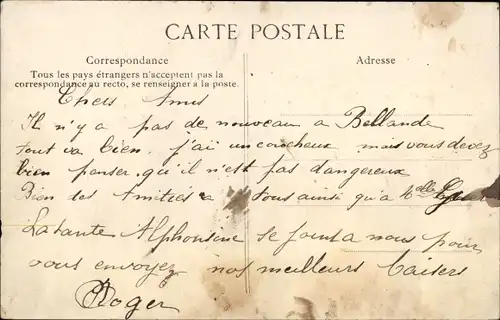 CARTE POSTALE
Correspondance
Adresse
Tous les pays étrangers n'acceptent pas la
correspondance au recto, se renseigner à la poste.
Chers Amis
Il n'y a pas de nouveau a Bellande
tout va bien. j'ai un mais vous devez
bien penser qu'il n'est pas dangereux
Bien des Amitiés a tous ainsi qu'a Melle
La tante Alphonsine se joint a nous pour
vous envoyez nos meilleurs baisers
Roger